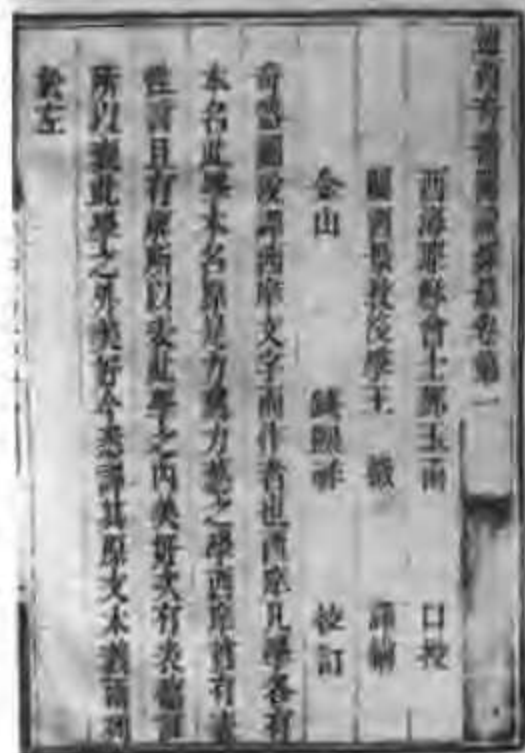 遠西奇器圖說錄最卷第一
西海耶穌會士鄧玉函 口授
關西景教後學王 徵 譯繪
金山 錢熙祚 校訂
奇器圖說譯西庠文字而作者也西庠凡學各有
本名此學本名原是力藝力藝之學西庠首有表
性言且有解所以表此學之內美好次有表德言
所以表此學之外美好今悉譯其原文本義而列
於左